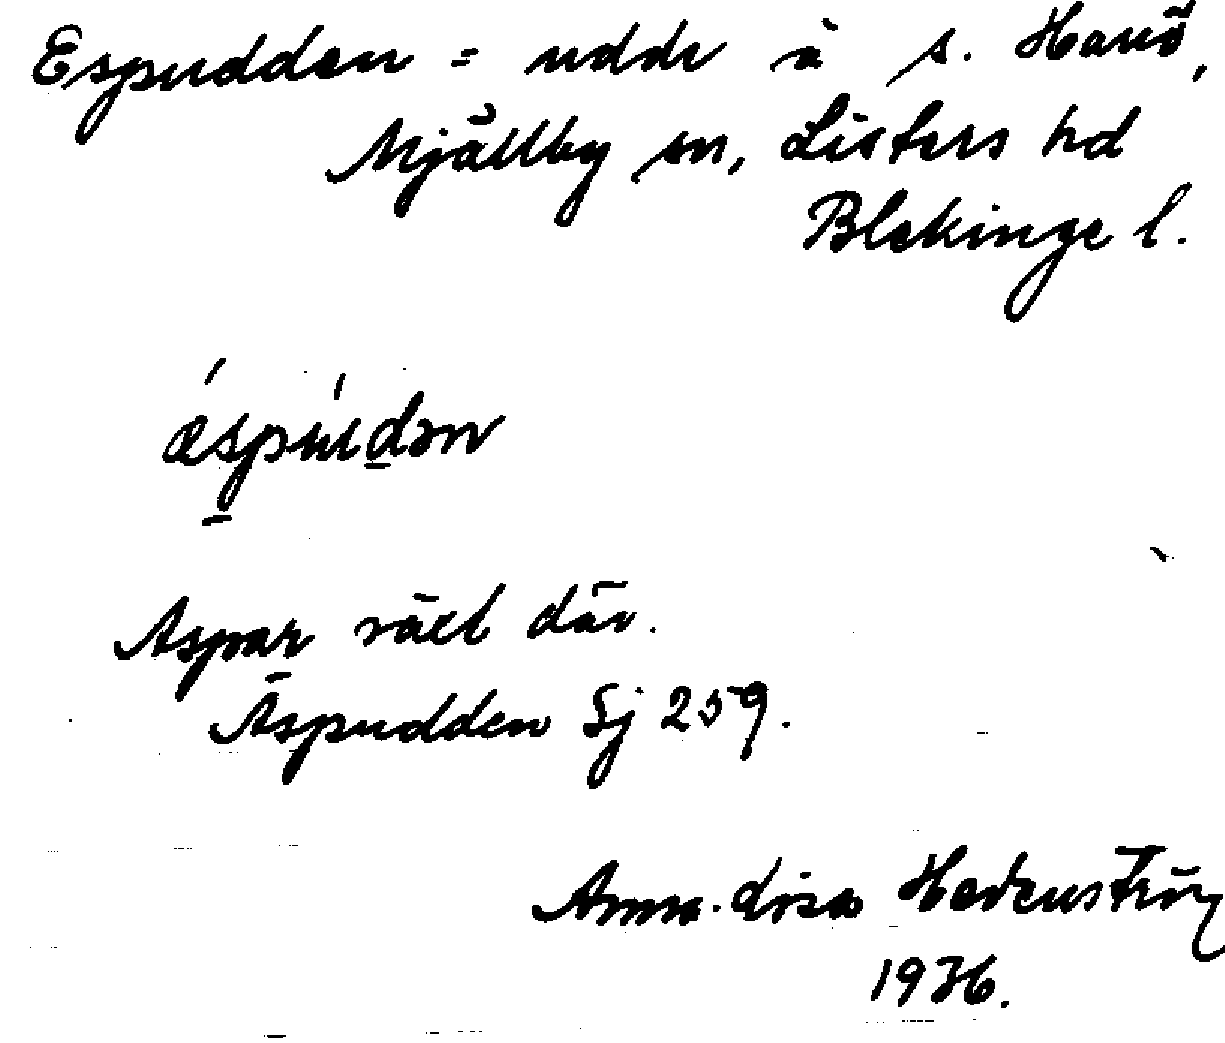 Espudden = udde å s. Hanö,
Mjällby sn, Listers hd
Blekinge l.
æspuden
Aspar växt där.
Äspudden Sj 259.
Anna-Lisa Hedenström
1936.